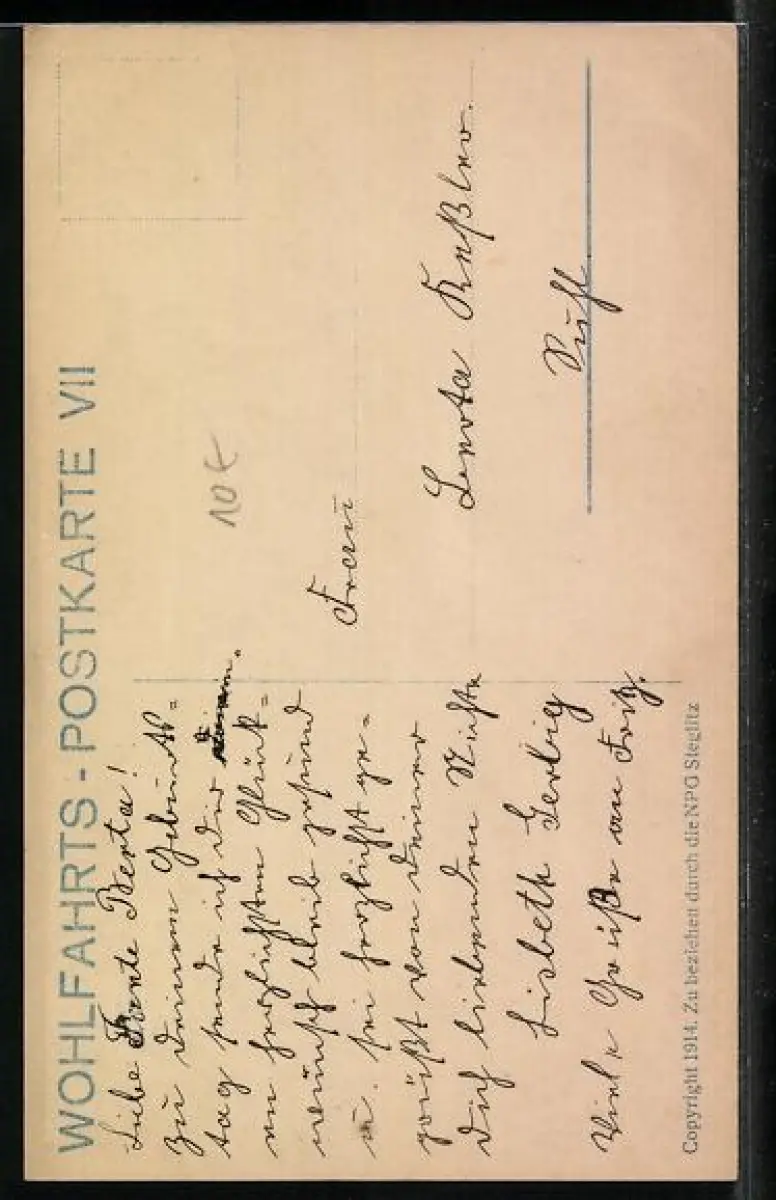 WOHLFAHRTS-POSTKARTE VII
Liebe Tante Berta!
Zu deinem Geburts=
tag sende ich dir deinen.
en herzlichsten Glück=
wünsch bleib gesund
u. sei herzlichst ge=
grüßt von deiner
dich liebenden Nichte
Lisbeth Gerbig
Viele Grüße an Fritz.
10 €
Frau
Berta Keßler.
Suhl
Copyright 1914. Zu beziehen durch die NPG Steglitz